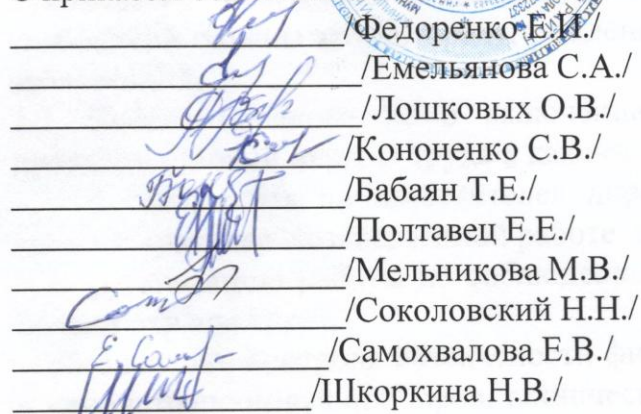 /Федоренко Е.И./
/Емельянова С.А./
/Лошковых О.В./
/Кононенко С.В./
/Бабаян Т.Е./
/Полтавец Е.Е./
/Мельникова М.В./
/Соколовский Н.Н./
/Самохвалова Е.В./
/Шкоркина Н.В./